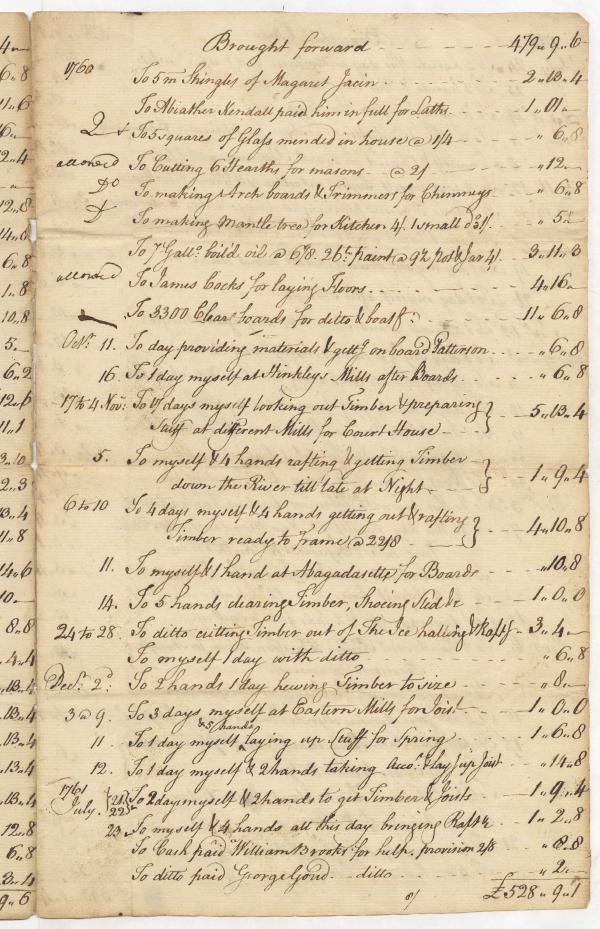 Brought forward - - - 479 „ 9 „ 6
1760 To 5 m Shingles of Magaret Jacin - - - 2 „ 13 „ 4
To Abiather Kendall paid him in full for Laths - - 1 „ 01 „ -
To 5 squares of Glass mended in house @ 1/4 - „ 6 „ 8
allowed To Cutting 6 Hearths for masons - @ 2/ - „ 12 „ -
Do To making Arch boards & Trimmers for Chimneys - „ 6 „ 8
D To making Mantle tree for Kitchen 4/. 1 small do 1/. - „ 5 „ -
To 7 Gallo. boild oil @ 6/8. 26 lt. paint @ 9d pot & Jar 4/. 3 „ 11 „ 3
allowed To James Cocks for laying Floors - - - 4 „ 16 „ -
To 3300 Clear boards for ditto & boat - - - 11 „ 6 „ 8
Octr. 11. To day providing materials & gettg on board Patterson - - „ 6 „ 8
16. To 1 day myself at Hinkleys Mills after Boards - - „ 6 „ 8
17 to 4 Nov: To 17 days myself looking out Timber & preparing
Stuff at different Mills for Court House - 5 „ 13 „ 4
5. To myself & 4 hands rafting & getting Timber
down the River till late at Night - - 1 „ 9 „ 4
6 to 10 To 4 days myself & 4 hands getting out & rafting
Timber ready to Frame @ 22/8 - 4 „ 10 „ 8
11. To myself & 1 hand at Abagadasette for Boards „ 10 „ 8
14. To 5 hands clearing Timber, Shoeing Sled &c - - 1 „ 0 „ 0
24 to 28. To ditto cutting Timber out of The Ice halling & Raftg - 3 „ 4 „ -
To myself 1 day with ditto - - - „ 6 „ 8
Decr. 2d: To 2 hands 1 day hewing Timber to size - - „ 8 „ -
3 @ 9. To 3 days myself at Eastern Mills for Joist - - 1 „ 0 „ 0
& 5 hands
11 To 1 day myself laying up Stuff for Spring - - 1 „ 6 „ 8
12. To 1 day myself & 2 hands taking Acco. & layg up Joist - „ 14 „ 8
1761
July. 21 & 22d To 2 days myself & 2 hands to get Timber & Joists - - 1 „ 9 „ 4
23 To myself & 4 hands all this day bringing Raft &c - 1 „ 2 „ 8
To Cash paid William Brooks for help, provision 2/8 - „ 8 „ 8
To ditto paid George Goud - ditto - - „ 2 „ -
8/ £528 „ 9 „ 1